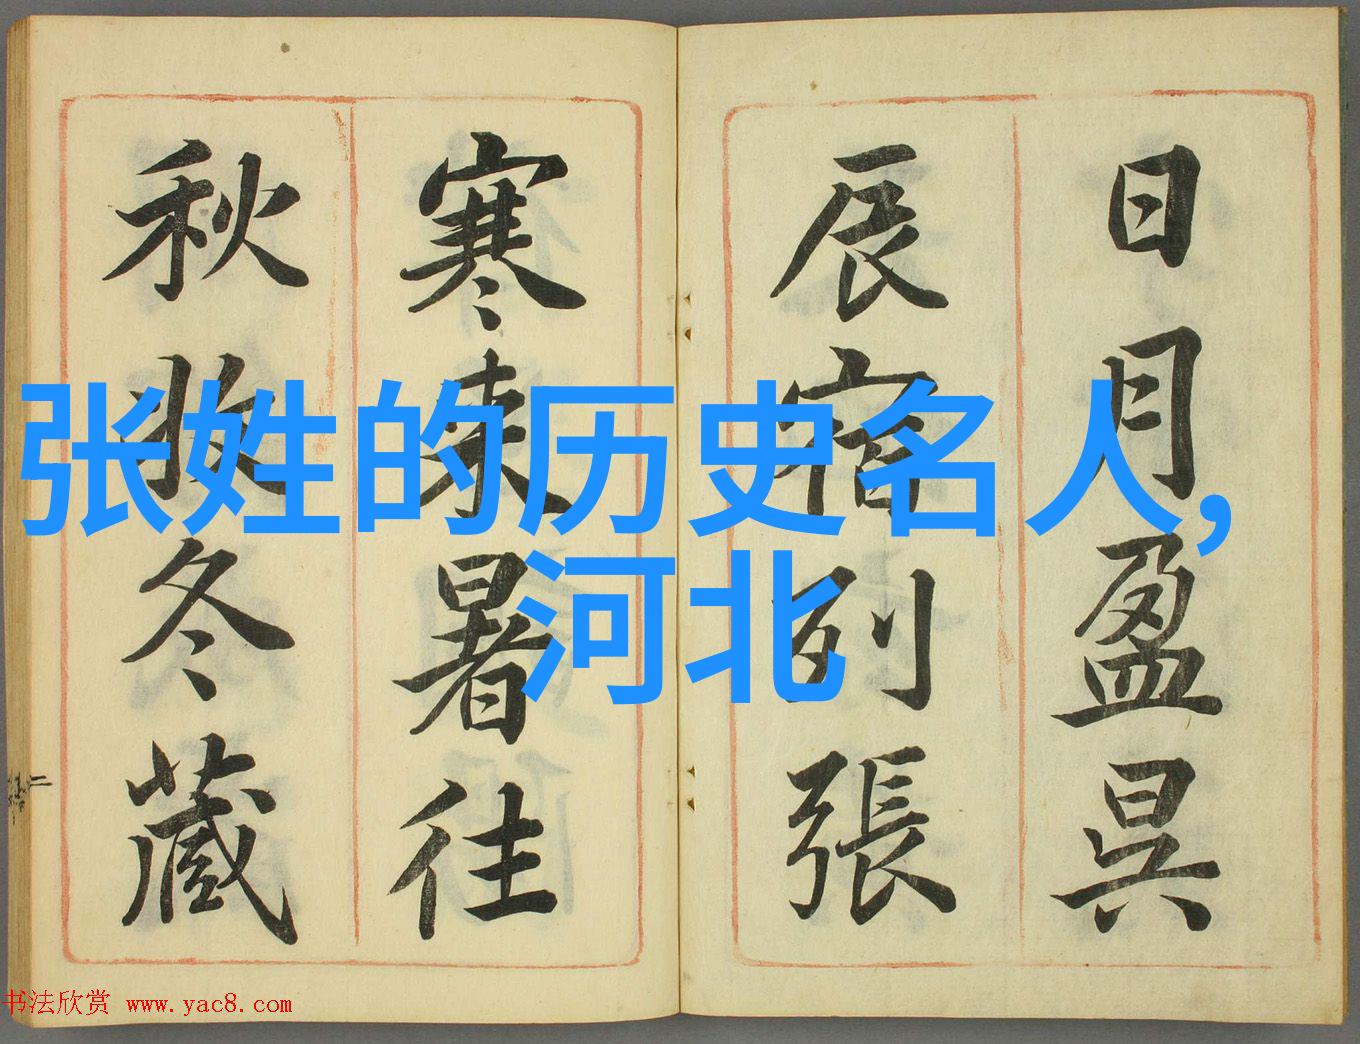 日月盈昃
辰宿列張
寒来暑往
秋收冬藏
张姓的历史名人,
河北
书法欣赏 www.yac8.com